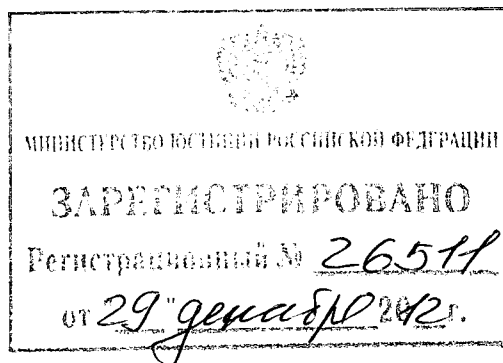 МИНИСТЕРСТВО ЮСТИЦИИ РОССИЙСКОЙ ФЕДЕРАЦИИ
ЗАРЕГИСТРИРОВАНО
Регистрационный № 26511
от "29" декабря 2012 г.